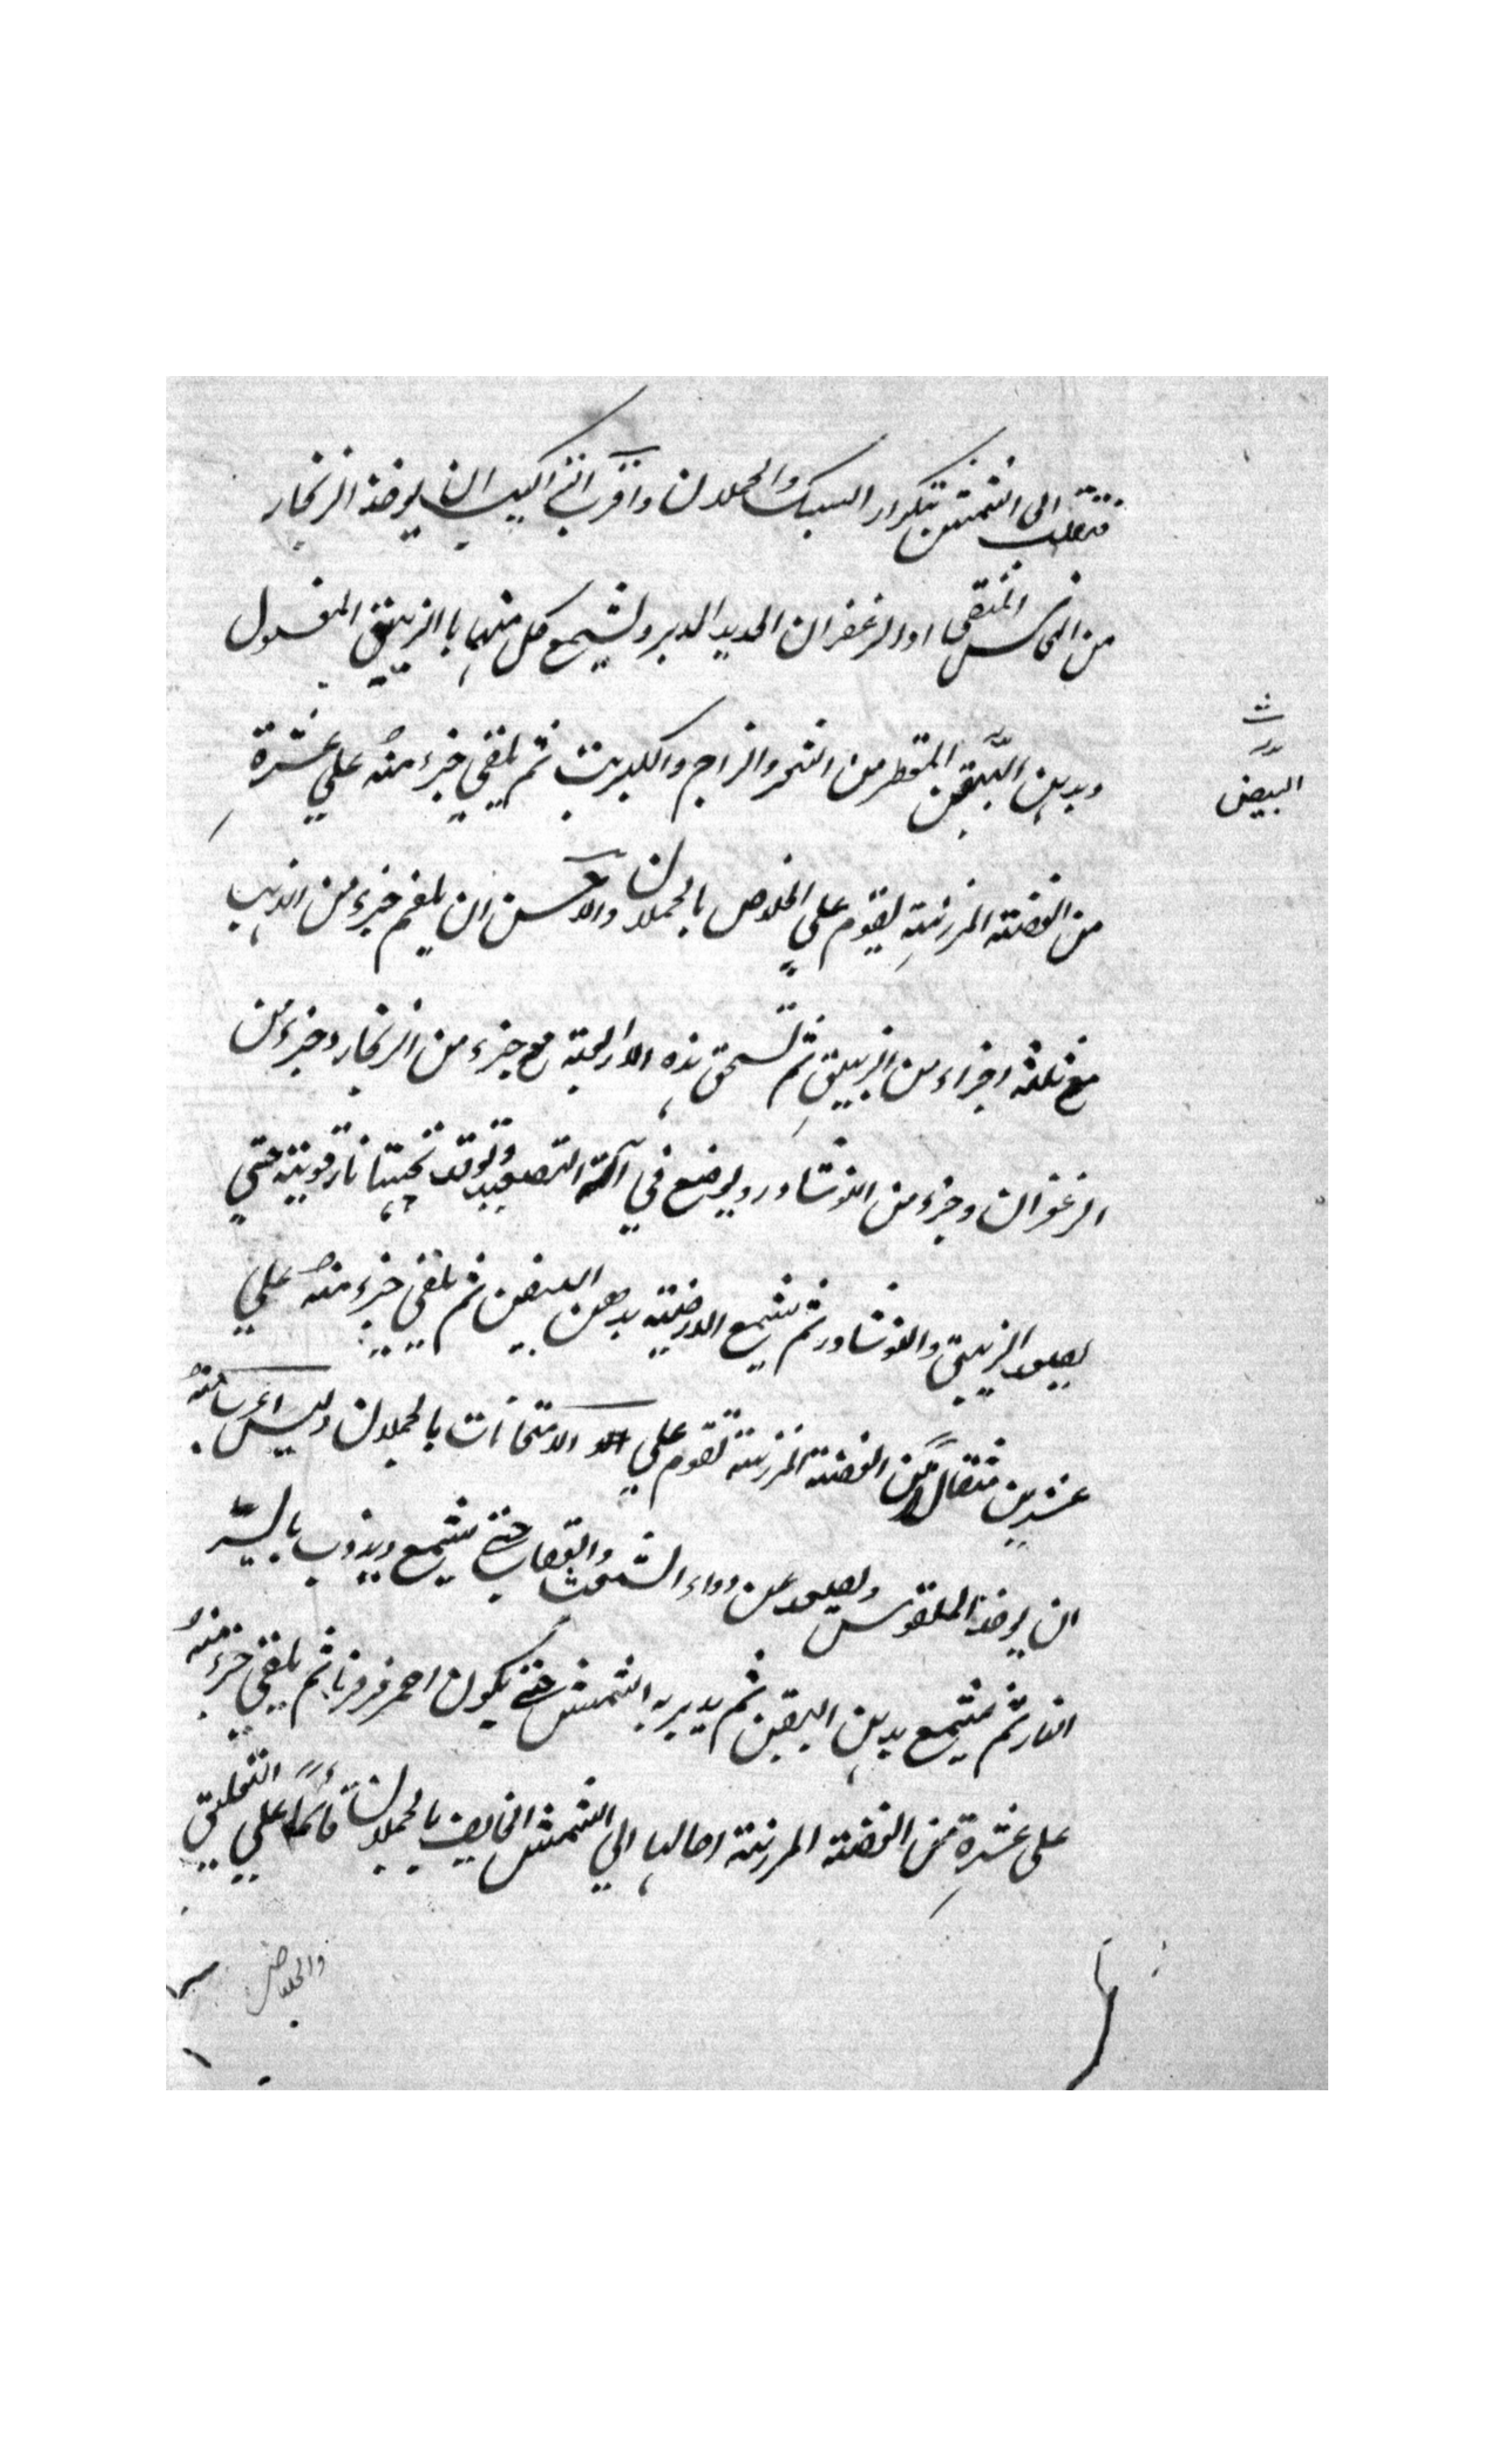 فتقلب الى الشمس بتكرار السبك والحملان واقرب اكسير ان يوخذ الزنجار
من النحاس المنقى او الزعفران الحديد المدبر وليشمع كل منهما باالزيبق المغسول
وبدهن البيض المقطر من الشعر والزاج والكبريت ثم يلقي جزء منهُ علي عشرةِ
من الفضة المرزنةِ ليقوم علي الخلاص بالحملان والاحسن ان يلغم جزء من الذهب
مع ثلثة اجزاء من الزيبق ثم تسحق هذه الاربعة مع جزء من الزنجار وجزء من
الزعفران وجزء من النوشادر ويوضع في آلة التصعيد وتوقد تحتها نار قوية حتي
يصعد الزيبق والنوشادر ثم يشمع الارضية بدهن البيض ثم يلقي جزء منهُ علي
عشرين مثقالاً من الفضة المرزنة تقوم علي الامتحانات بالحملان وليس
ان يوخذ ويصعد عن دواء والعقاب حتي يشمع ويذوب
النار ثم يشمع بدهن البيض ثم يدبر به الشمس حتي يكون احمر فرفريا ثم يلقي جزء منهُ
على عشرةِ من الفضة المرزنة احالها الي الشمس بالحملان قائماً علي التعليق
البيض
والخلاص